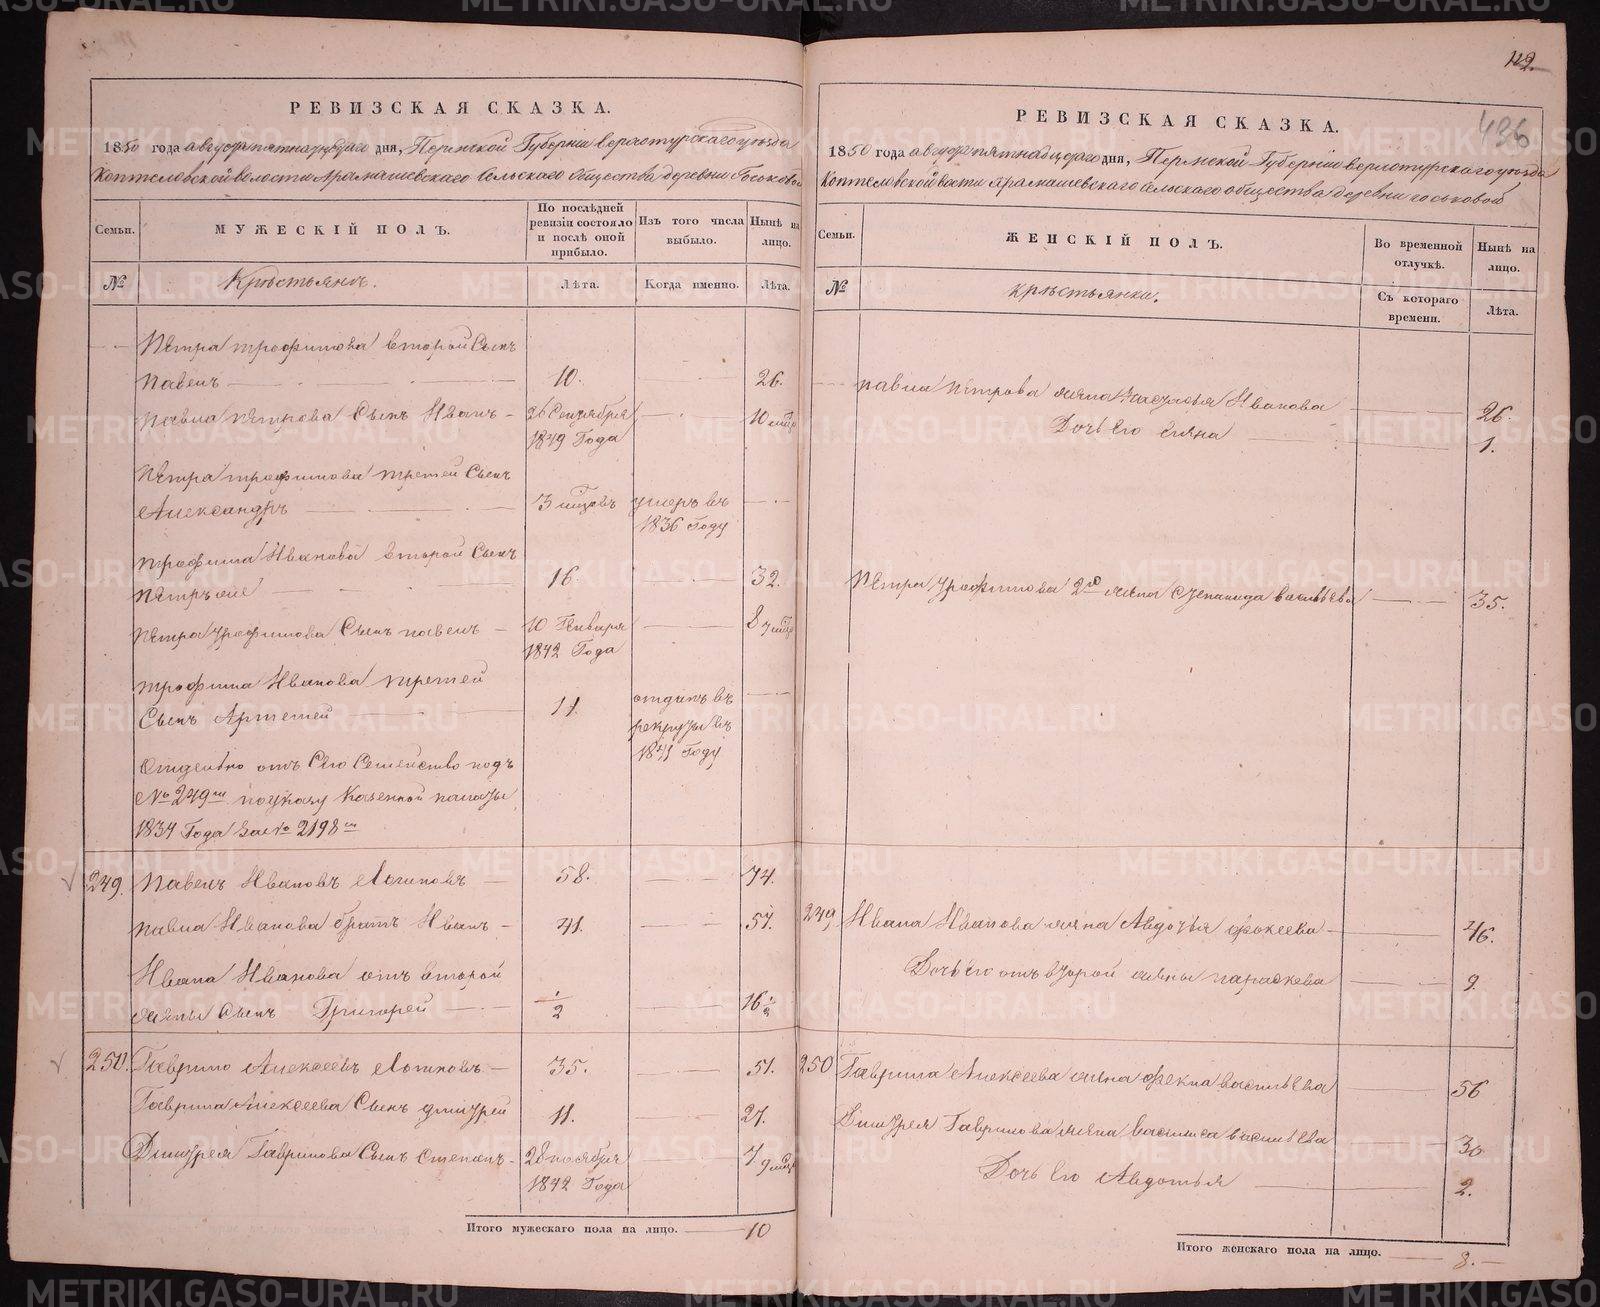 РЕВИЗСКАЯ СКАЗКА.
1850 года августа пятнадцатаго дня, Пермской Губернии верхотурскаго уѣзда
Коптеловской волости Арамашевскаго Сельскаго Общества деревни Госьковой
Семьи.
МУЖЕСКІЙ ПОЛЪ.
По послѣдней ревизіи состояло и послѣ оной прибыло.
Изъ того числа выбыло.
Нынѣ на лицо.
№
Крѣстьянъ.
Лѣта.
Когда именно.
Лѣта.
Пѣтра трофимова второй Сынъ
павелъ 10. 26.
Павла пѣтрова Сынъ Иванъ 26 Сентября 1849 Года 10 мцъ
Пѣтра трофимова третей Сынъ
Александръ 3 мцовъ умеръ въ 1836 Году
трофима Иванова второй Сынъ
пѣтръ 16. 32.
пѣтра трофимова Сынъ павелъ 10 Генваря 1842 Года 8 7 мцъ
трофима Иванова третей
Сынъ Артемей 11. отданъ въ рекруты въ 1841 Году
Отделено отъ Сего Семейство подъ
№ 249 м поуказу Казенной палаты
1834 Года за № 2198 м
249. павелъ Ивановъ Логиновъ 58. 74.
павла Иванова братъ Иванъ 41. 57.
Ивана Иванова отъ второй
жены Сынъ Григорей 1/2 16 1/2
250. Гаврило Алексеевъ Логиновъ 35. 51.
Гаврила Алексеева Сынъ дмитрей 11. 27.
Дмитрея Гаврилова Сынъ степанъ 28 ноября 1842 Года 7 9 мцъ
Итого мужескаго пола на лицо. 10
112.
426
РЕВИЗСКАЯ СКАЗКА.
1850 года августа пятнадцатаго дня, Пермской Губернии верхотурскаго уѣзда
Коптеловской Арамашевскаго сельскаго общества деревни госьковой
Семьи.
ЖЕНСКІЙ ПОЛЪ.
Во временной отлучкѣ.
Нынѣ на лицо.
№
крѣстьянки.
Съ котораго времени.
Лѣта.
павла Пѣтрова жена Настасья Иванова 26.
Дочь Его 1.
Пѣтра трофимова 2я жена степанида васильева 35.
249. Ивана Иванова жена Авдотья фокеева 46.
Дочь Его отъ второй жены параскева 9
250 Гаврила Алексеева жена фекла васильева 56
Дмитрея Гаврилова жена василиса васильева 30
Дочь Его Авдотья 2.
Итого женскаго пола на лицо. 8.
METRIKI.GASO-URAL.RU